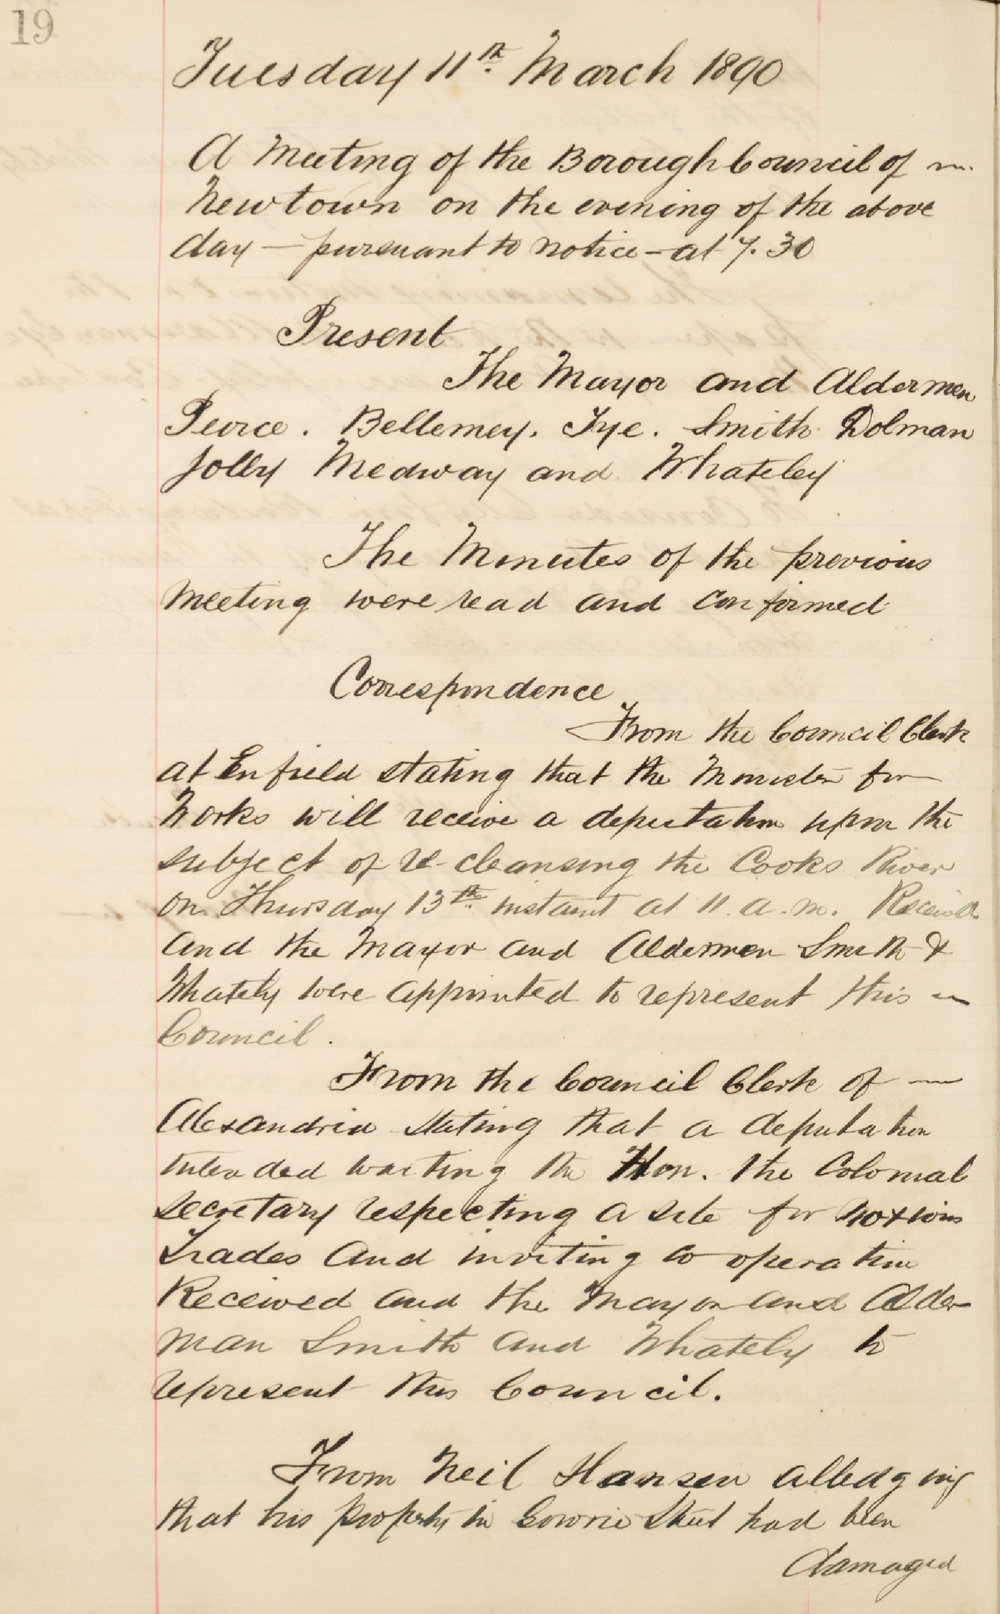 19
Tuesday 11th March 1890
A Meeting of the Borough Council of
Newtown on the evening of the above
day - pursuant to notice - at 7.30
Present
The Mayor and Aldermen
Pearce. Bellemey. Tye. Smith Dolman
Jolly Medway and Whateley
The Minutes of the previous
meeting were read and confirmed
Correspondence
From the Council Clerk
at Enfield stating that the Minister for
Works will receive a deputation upon the
subject of re-cleansing the Cooks River
on Thursday 13th instant at 11 a.m. Received
and the Mayor and Aldermen Smith &
Whately were appointed to represent this
Council.
From the Council Clerk of
Alexandria stating that a deputation
intended waiting the Hon. the Colonial
secretary respecting a site for noxious
Trades and inviting co operation
Received and the Mayor and Alder-
man Smith and Whately to
represent this Council.
From Neil Hansen alledging
that his property in Gowrie Street had been
damaged